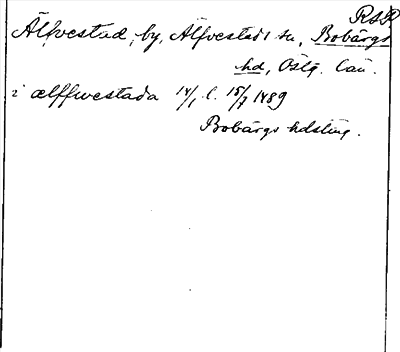 RSP
Älfvestad, by, Älfvestads sn, Bobärgs
hd, Östg. län.
i ælffwestada 14/1 l. 15/7 1489
Bobärgs hdsting.